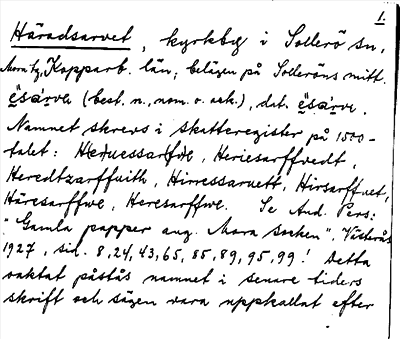 1.
Häradsarvet, kyrkby i Sollerö sn,
Mora tg, Kopparb. län; belägen på Solleröns mitt.
ȯ̈sàrve (best. n., nom. o. ack.), dat. ȯ̈sàrve.
Namnet skrevs i skatteregister på 1500-
talet: Heruessarffve, Heriesarffvedt,
Heredtzarffuith, Hirressaruett, Hirsarffuet,
Häresarffwe, Heresarffwe. Se And. Pers:
"Gamla papper ang. Mora socken". Västerås
1927, sid. 8, 24, 43, 65, 85, 89, 95, 99! Detta
oaktat påstås namnet i senare tiders
skrift och sägen vara uppkallat efter